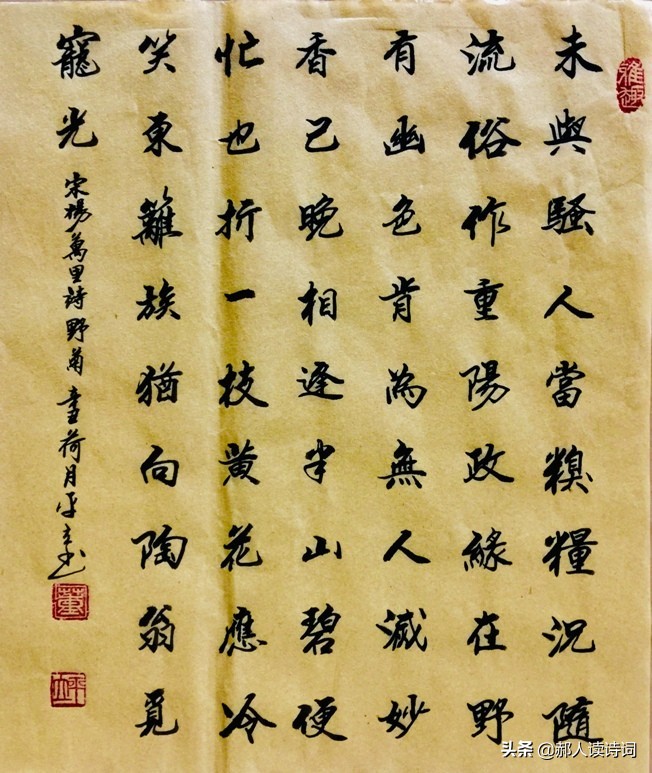 雅趣
未與騷人當糗糧況隨
流俗作重陽政緣在野
有幽色肯為無人減妙
香已晚相逢半山碧便
忙也折一枝黃花應冷
笑東籬族猶向陶翁覓
寵光
宋楊萬里詩野菊 荷月
董
头条 @郝人读诗词